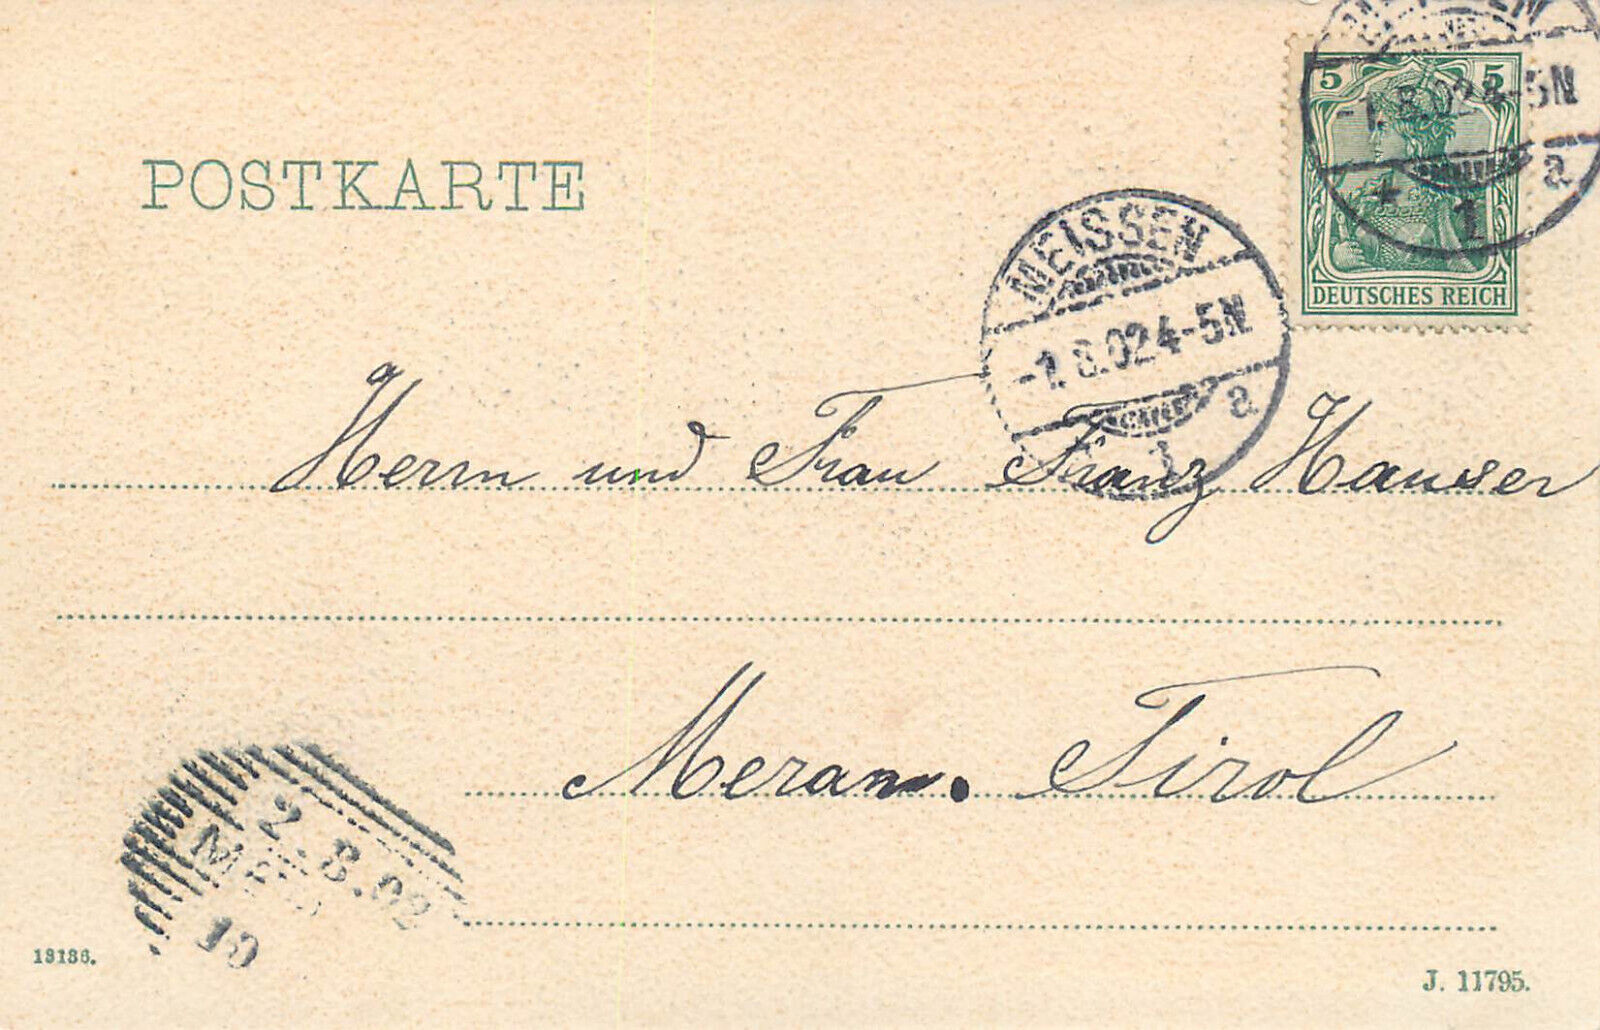 MEISSEN
5 5
-1.8.02 4-5N
* 1 a
DEUTSCHES REICH
POSTKARTE
MEISSEN
-1.8.02 4-5N
1 a
Herrn und Frau Franz Hauser
Meran. Tirol
2.8.02
10
13136.
J. 11795.